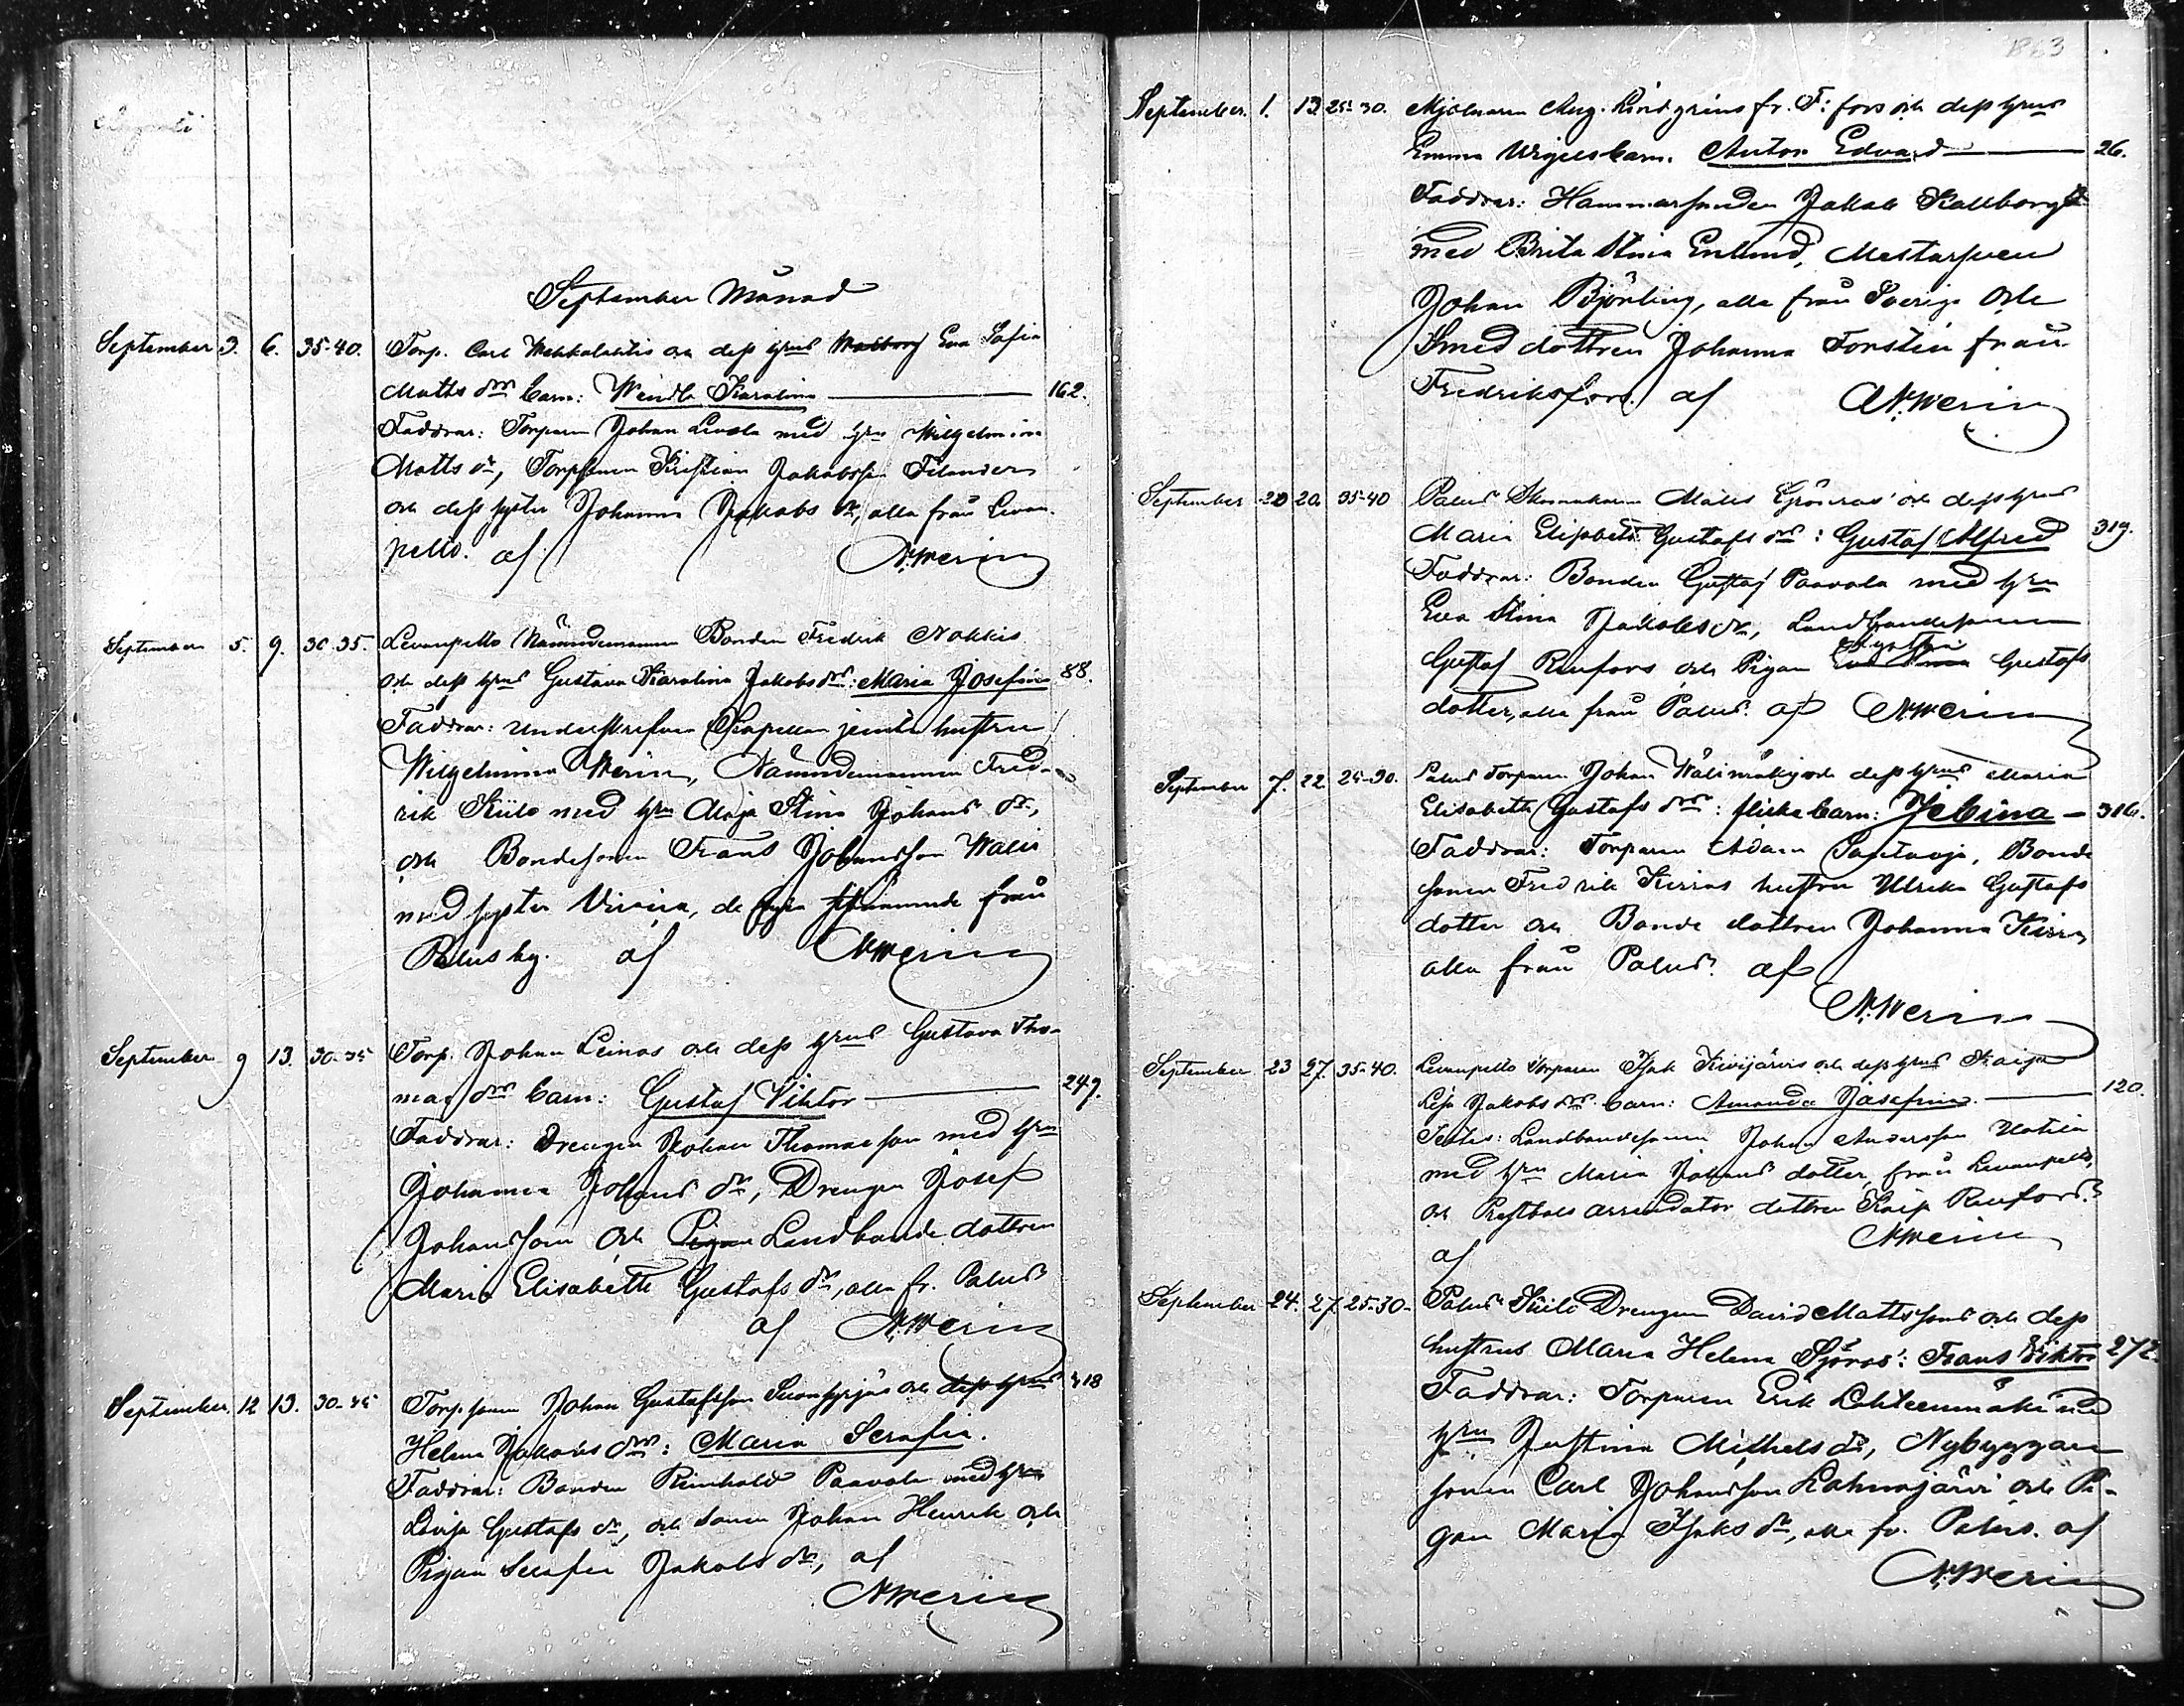 Augusti
September Månad
September 3. 6. 35-40. Torp. Carl och dess hrus Walborg Eva Sofia
Matts dors barn: Wendla Karolina 162.
Faddrar: Torparen Johan med hru Wilhelmina
Matts dr, Torpsonen Kristian Jakobsson Filander
och dess syster Johanna Jakobs dr, alla från Levan-
pelto. af N. Werin
September 5. 9. 30-35. Levanpelto Nämndemannen Bonden Fredrik Nokkis
och dess hrus Gustava Karolina Jakobs drs: Maria Josefina 88.
Faddrar: Underskrifven Kapellan jemte hustru
Wilhelmina Werin, Nämndemannen Fred-
rik Kiilo med hru Maja Stina Johans dr,
och Bondesonen Frans Johansson Walli
med syster, de från
Palus by. af N. Werin
September 9 13. 30-35 Torp. Johan Leinos och dess hrus Gustava Tho-
mas drs barn: Gustaf Viktor 249.
Faddrar: Drengen Johan Thomasson med hru
Johanna Johans dr, Drengen Josef
Johansson och Pigan Landbonde dottren
Maria Elisabeth Gustafs dr, alla fr. Palus
af N. Werin
September 12 13. 30-35 Torp. sonen Johan Gustafsson och dess hrus 318
Helena Jakobs drs: Maria Serafia.
Faddrar: Bonden Reinhold Paavola med hru
Lovisa Gustafs dr, och sonen Johan Henrik och
Pigan Serafia Jakobs dr, af
N. Werin
1863
September. 1. 13 25-30. Mjölnaren Aug. Lindgrens fr. F:fors och dess hrus
Emma barn. Anton Edvard 26.
Faddrar: Hammarsmeden Jakob Kallborg
med Brita Stina Enlund, Mestarsven
Johan Björling, alla från Sverige och
Smeddottren Johanna Forstén från
Fredriksfors. af N. Werin
September 20 20. 35-40 Palus Skomakaren Matts Grönroos' och dess hrus
Maria Elisabeth Gustafs drs: Gustaf Alfred 319.
Faddrar: Bonden Gustaf Paavola med hru
Eva Stina Jakobs dr, Landbondesonen
Gustaf Renfors och Pigan Eva Stina Gustafs
dotter, alla från Palus. af N. Werin
September 7. 22. 25-30. Palus Torparen Johan Wälimäkis och dess hrus Maria
Elisabeth Gustafs drs: flickebarn: Jebina 316.
Faddrar: Torparen Adam, Bonde
sonen Fredrik hustru Ulrika Gustafs
dotter och Bonde dottren Johanna
alla från Palus. af
N. Werin
September 23 27. 35-40. Levanpelto Torparen Isak Kivijärvis och dess hrus Kaija
Lisa Jakobs drs barn: Amanda Josefina. 120.
Testes: Landbondesonen Johan Andersson Uotila
med hru Maria Johans dotter, från Levanpelto,
och arrendator dottren Kaisa Renfors.
af N. Werin
September 24. 27. 25-30. Palus Kiilo Drengen David Mattssons och dess
hustrus Maria Helena Sjöroos': Frans Viktor 272.
Faddrar: Torparen Erik Lähteenmäki med
hru Justina Michels dr, Nybyggare
sonen Carl Johansson Lahnajärvi och Pi-
gan Maria Isaks dr, alla fr. Palus. af
N. Werin